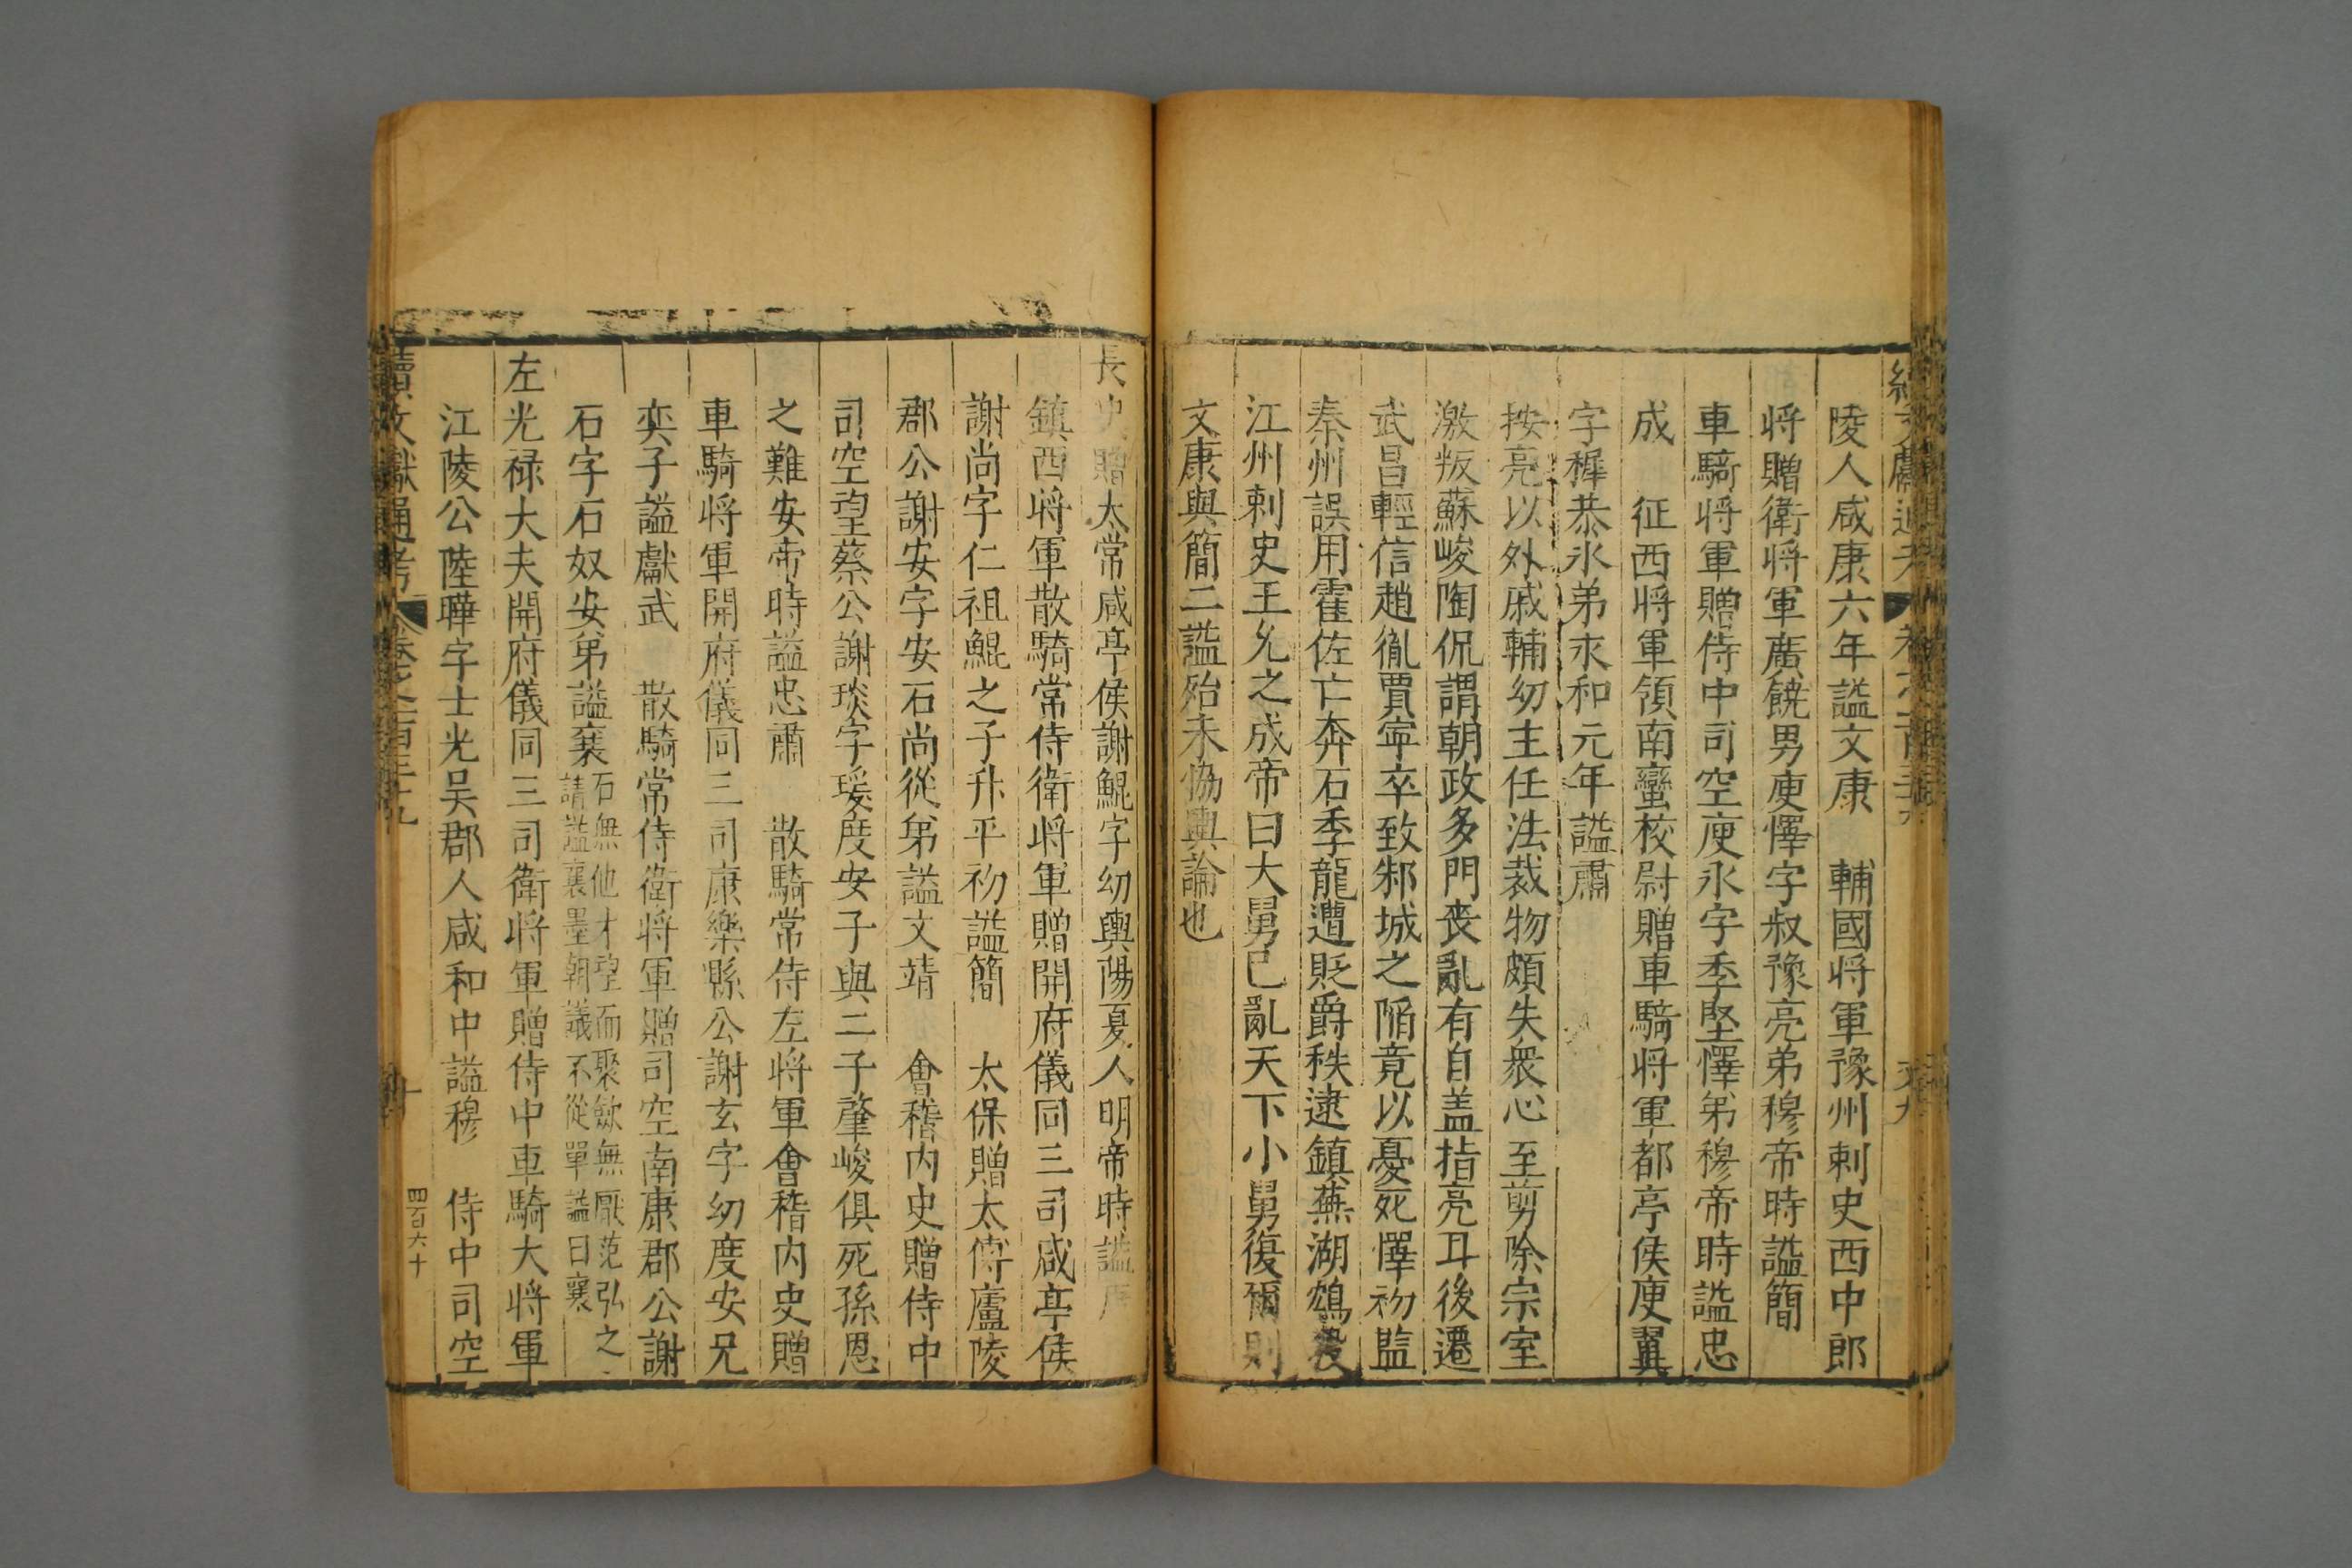 陵人咸康六年謚文康　輔國將軍豫州刺史西中郎
将贈衛将軍廣饒男庾懌字叔豫亮弟穆帝時謚簡
車騎将軍贈侍中司空庾氷字季堅懌弟穆帝時謚忠
成　征西將軍領南蠻校尉贈車騎将軍都亭侯庾翼
字穉恭氷弟永和元年謚肅
按亮以外戚輔幼主任法裁物頗失衆心至剪除宗室
激叛蘇峻陶侃謂朝政多門喪亂有自盖指亮耳後遷
武昌輕信趙胤賈寧卒致邾城之陥竟以憂死懌初監
秦州誤用霍佐亡奔石季龍遭貶爵秩逮鎮蕪湖鴆殺
江州刺史王允之成帝曰大舅已亂天下小舅復爾則
文康與簡二謚殆未恊輿論也
長史贈太常咸亭侯謝鯤字幼輿陽夏人明帝時謚
鎮西将軍散騎常侍衛将軍贈開府儀同三司咸亭侯
謝尚字仁祖鯤之子升平初謚簡　太保贈太傅廬陵
郡公謝安字安石尚從弟謚文靖　會稽内史贈侍中
司空望蔡公謝琰字瑗度安子與二子肇峻俱死孫恩
之難安帝時謚忠肅　散騎常侍左将軍會稽内史贈
車騎将軍開府儀同三司康樂縣公謝玄字幼度安兄
奕子謚獻武　散騎常侍衛将軍贈司空南康郡公謝
石字石奴安弟謚襄石無他才望而聚歛無厭范弘之
請謚襄墨朝議不從單謚曰襄
左光禄大夫開府儀同三司衛将軍贈侍中車騎大将軍
江陵公陸曄字士光吳郡人咸和中謚穆　侍中司空
續文獻通考
四百六十